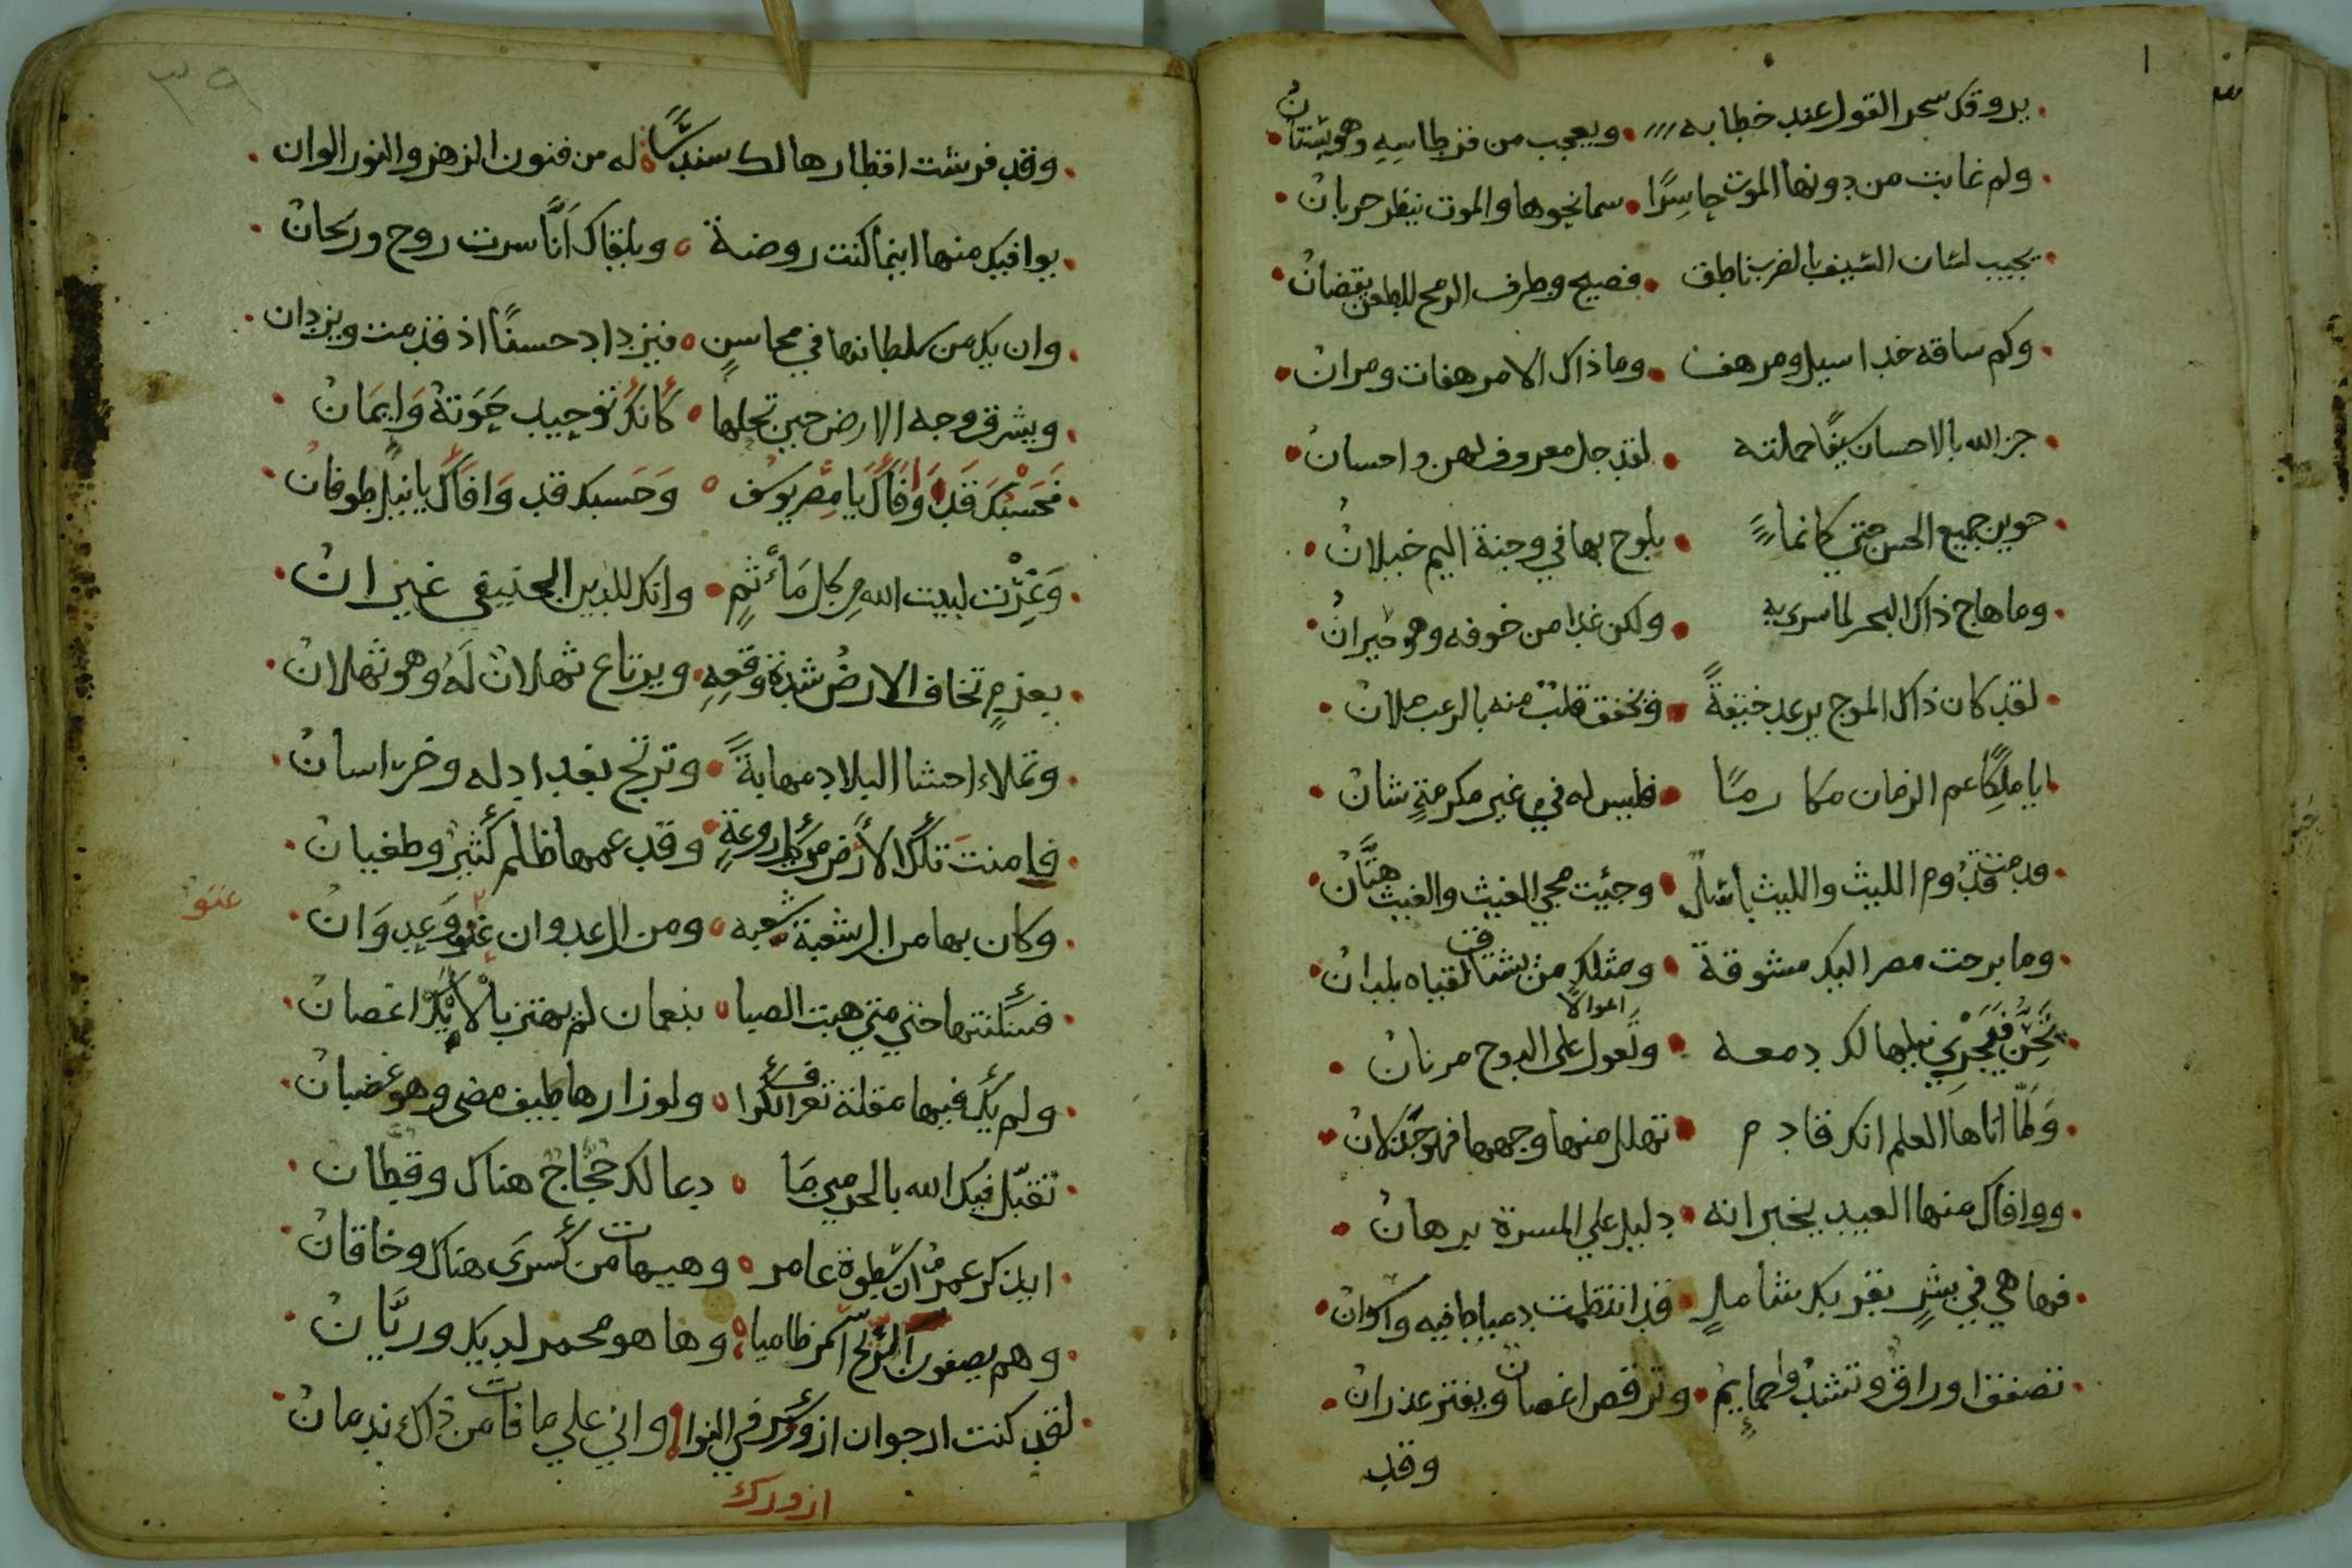 يروقك سحر القول عند خطابه ويعجب من قرطاسه وهو بستان
ولم غابت من دونها الموت جاسرًا سما نحوها والموت ينظر حربان
يجيب لسان السيف بالضرب ناطق فصيح وطرف الرمح للطعن يقضان
وكم ساقه خد اسيل ومرهف وما ذاك الا مرهفات ومران
جز الله بالاحسان سفنًا حملته لقد جل معروف لهن واحسان
حوين جميع الحسن حتي كانما يلوح بها في وجنة اليم خيلان
وما هاج ذاك البحر لما سري به ولكن غدا من خوفه وهو حيران
لقد كان ذاك الموج يرعد خيفةً وتخفق قلب منه بالرعب ملان
ايا ملكًا عم الزمان مكارمًا فليس له في غير مكرمةٍ شان
قدمت قدوم الليث والليث باسل وجئت مجي الغيث والغيث هتَّان
وما برحت مصر اليك مشوقة ومثلك من تشتاق لقياه بلدان
تَحِنُّ فيَجْرِي نيلها لك دمعه وتعول على الدوح مرنان
اعوالًا
وَلمّا اتاها العلم انك قادم تهلل منها وجهها فهو جذلان
ووافاك منها العيد يخبر انه دليل علي المسرة برهان
فها هي في بشرٍ بقربك شاملٍ قد انتظمت دمياط فيه واسوان
تصفق اوراق وتشد وحمايم وترقص اغصان ويفتر عدران
وقد
٣٩
وقد فرشت اقطارها لك سندسًا له من فنون الزهر والنور الوان
يوافيك منها اينما كنت روضة ويلقاك انَّا سرت روح وريحان
وان يك من سلطانها في محاسنٍ فيزداد حسنًا اذ قدمت ويزدان
ويشرق وجه الارض حين تحلها كأنك توحيد حَوَتهُ وَايمَانُ
فَحَسْبُكَ قَد وَافَاكَ يَا مِصر يوسُف وَحَسبك قد وَافاكَ يا نيل طوفان
وَعُزْت لبيت الله من كل مَأثمٍ وانك للدين الحنيفي غيران
بعزمٍ تخاف الارض شدة وقعِهِ ويرتاع ثهلان لَهُ وهو ثهلان
وتملاء احشا البلاد مهابةً وترتج بغداد له وخراسان
فامنتَ تلك الأرض من كل روعةٍ وقد عمها ظلم كثير وطغيان
وكان بها من الشعبة شعبه ومن العدوان عتو وَعدوَان
عتو
فسكنتها حتي متي هبت الصبا بنعمان لم يهتز بالأَيْك اغصان
ولم يك فيها مقلة تعرف الكرا ولو زارها طيف مضى وهو غضبان
تقبّل فيك الله بالحرمين مَا دعا لك حجاج هناك وقطان
ايذكر عمرو ان سطوة عامر وهيهات من كسرَى هناك وخاقان
وهم يصفون الرمح اسمر ظاميا وها هو محمر لديك وريَّان
لقد كنت ارجوان ازورك في النوا واني علي ما فات من ذاك ندمان
ازورك